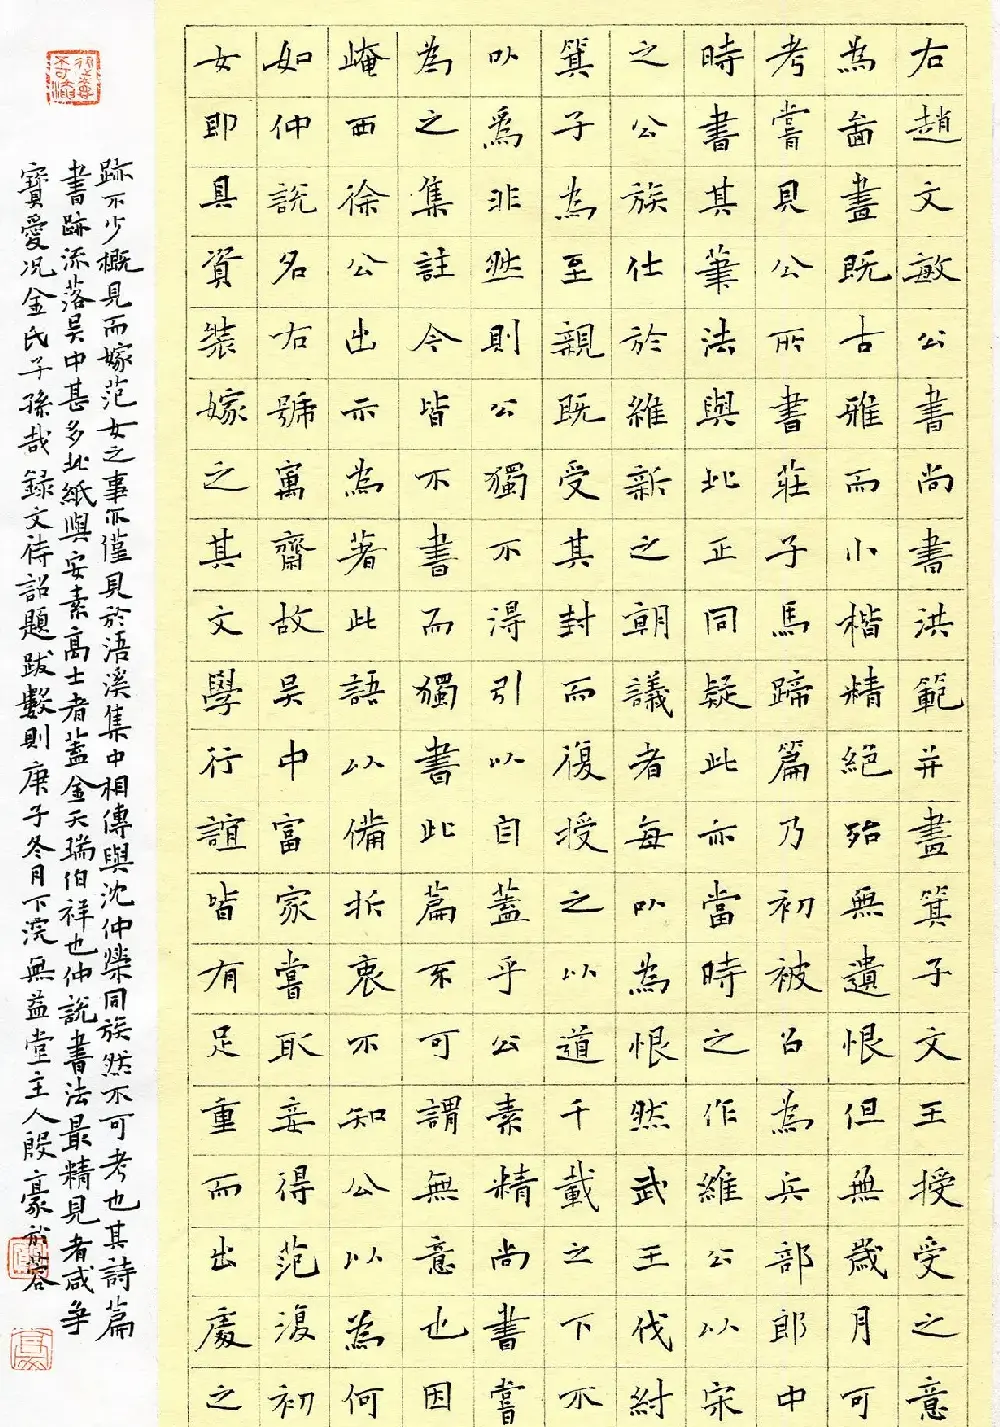 右趙文敏公書尚書洪範并畫箕子文王授受之意
為啚畫既古雅而小楷精絕殆無遺恨但無歲月可
考嘗見公所書莊子馬蹄篇乃初被召為兵部郎中
時書其筆法與此正同疑此亦當時之作維公以宋
之公族仕於維新之朝議者每以為恨然武王伐紂
箕子為至親既受其封而復授之以道千載之下不
以為非然則公獨不得引以自蓋乎公素精尚書嘗
為之集註今皆不書而獨書此篇不可謂無意也因
崦西徐公出示為著此語以備折衷不知公以為何
如仲說名右號寓齋故吳中富家嘗取妾得范復初
女即具資裝嫁之其文學行誼皆有足重而出處之
跡不少概見而嫁范女之事亦僅見於浯溪集中相傳與沈仲榮同族然不可考也其詩篇
書跡流落吳中甚多此紙與安素高士者蓋金天瑞伯祥也仲說書法最精見者咸爭
寶愛況金氏子孫哉 錄文待詔題跋數則庚子冬月下浣無益堂主人殷豪於蓉